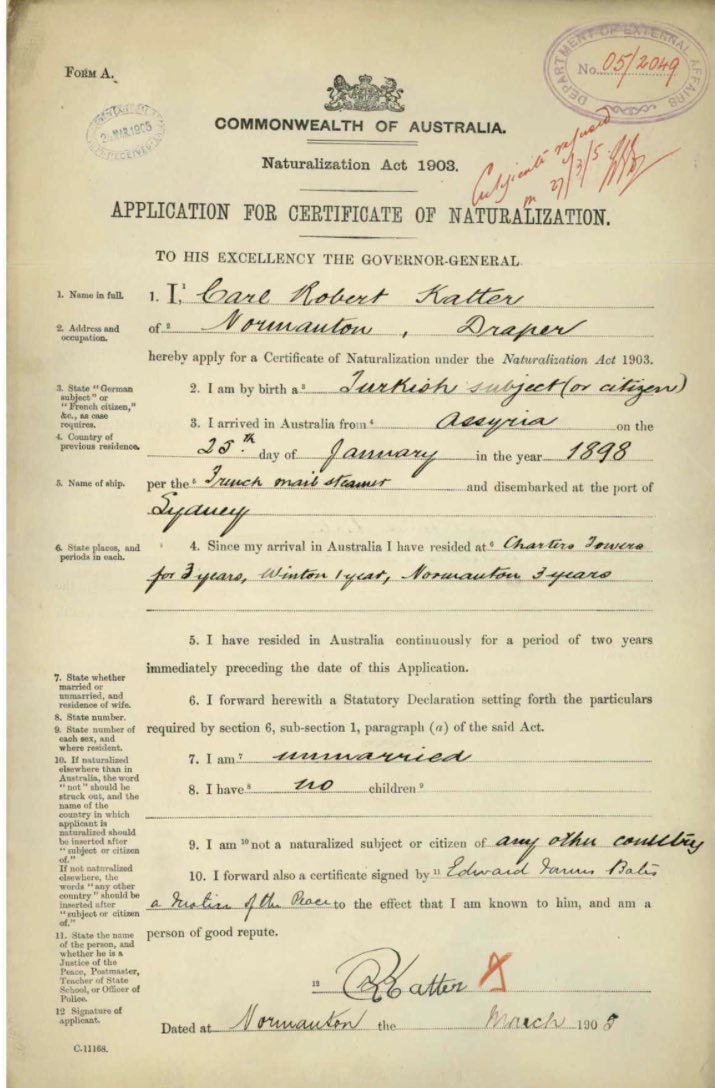 FORM A.
DEPARTMENT OF EXTERNAL AFFAIRS
No. 05/2049
MAR 1905
RECEIVED
COMMONWEALTH OF AUSTRALIA.
Naturalization Act 1903.
Certificate refused
27/3/5
APPLICATION FOR CERTIFICATE OF NATURALIZATION.
TO HIS EXCELLENCY THE GOVERNOR-GENERAL.
1. Name in full.
1. I,¹ Carl Robert Katter
2. Address and occupation.
of ² Normanton, Draper
hereby apply for a Certificate of Naturalization under the Naturalization Act 1903.
3. State "German
subject" or
"French citizen,"
&c., as case
requires.
2. I am by birth a ³ Turkish subject (or citizen)
4. Country of
previous residence.
3. I arrived in Australia from ⁴ Assyria on the
25th day of January in the year 1898
5. Name of ship.
per the ⁵ French mail steamer and disembarked at the port of
Sydney
6. State places, and
periods in each.
4. Since my arrival in Australia I have resided at ⁶ Charters Towers
for 3 years, Winton 1 year, Normanton 3 years
5. I have resided in Australia continuously for a period of two years
immediately preceding the date of this Application.
7. State whether
married or
unmarried, and
residence of wife.
8. State number.
9. State number of
each sex, and
where resident.
10. If naturalized
elsewhere than in
Australia, the word
"not" should be
struck out, and the
name of the
country in which
applicant is
naturalized should
be inserted after
"subject or citizen
of."
If not naturalized
elsewhere, the
words "any other
country" should be
inserted after
"subject or citizen
of."
11. State the name
of the person, and
whether he is a
Justice of the
Peace, Postmaster,
Teacher of State
School, or Officer of
Police.
12 Signature of
applicant.
6. I forward herewith a Statutory Declaration setting forth the particulars
required by section 6, sub-section 1, paragraph (a) of the said Act.
7. I am ⁷ unmarried
8. I have ⁸ no children ⁹
9. I am ¹⁰ not a naturalized subject or citizen of any other country
10. I forward also a certificate signed by ¹¹ Edward Bates
a Justice of the Peace to the effect that I am known to him, and am a
person of good repute.
¹² CRKatter X
Dated at Normanton the March 1905
C.11168.